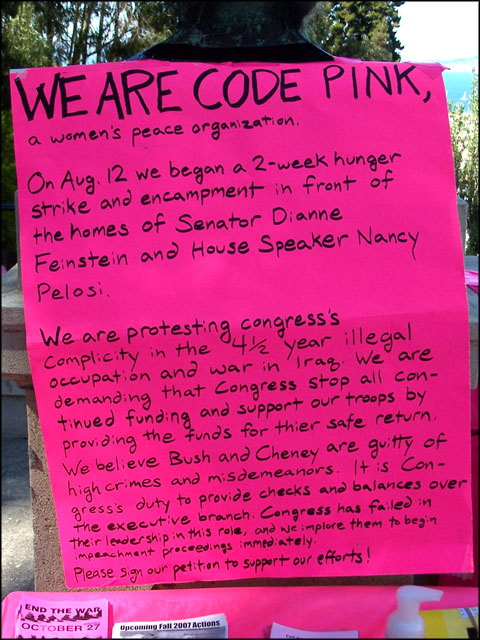 WE ARE CODE PINK,
a women's peace organization.
On Aug. 12 we began a 2-week hunger
strike and encampment in front of
the homes of Senator Dianne
Feinstein and House Speaker Nancy
Pelosi.
We are protesting congress's
complicity in the 4½ year illegal
occupation and war in Iraq. We are
demanding that Congress stop all con-
tinued funding and support our troops by
providing the funds for thier safe return.
We believe Bush and Cheney are guilty of
high crimes and misdemeanors. It is Con-
gress's duty to provide checks and balances over
the executive branch. Congress has failed in
their leadership in this role, and we implore them to begin
impeachment proceedings immediately.
Please sign our petition to support our efforts!
END THE WAR
OCTOBER 27
Upcoming Fall 2007 Actions